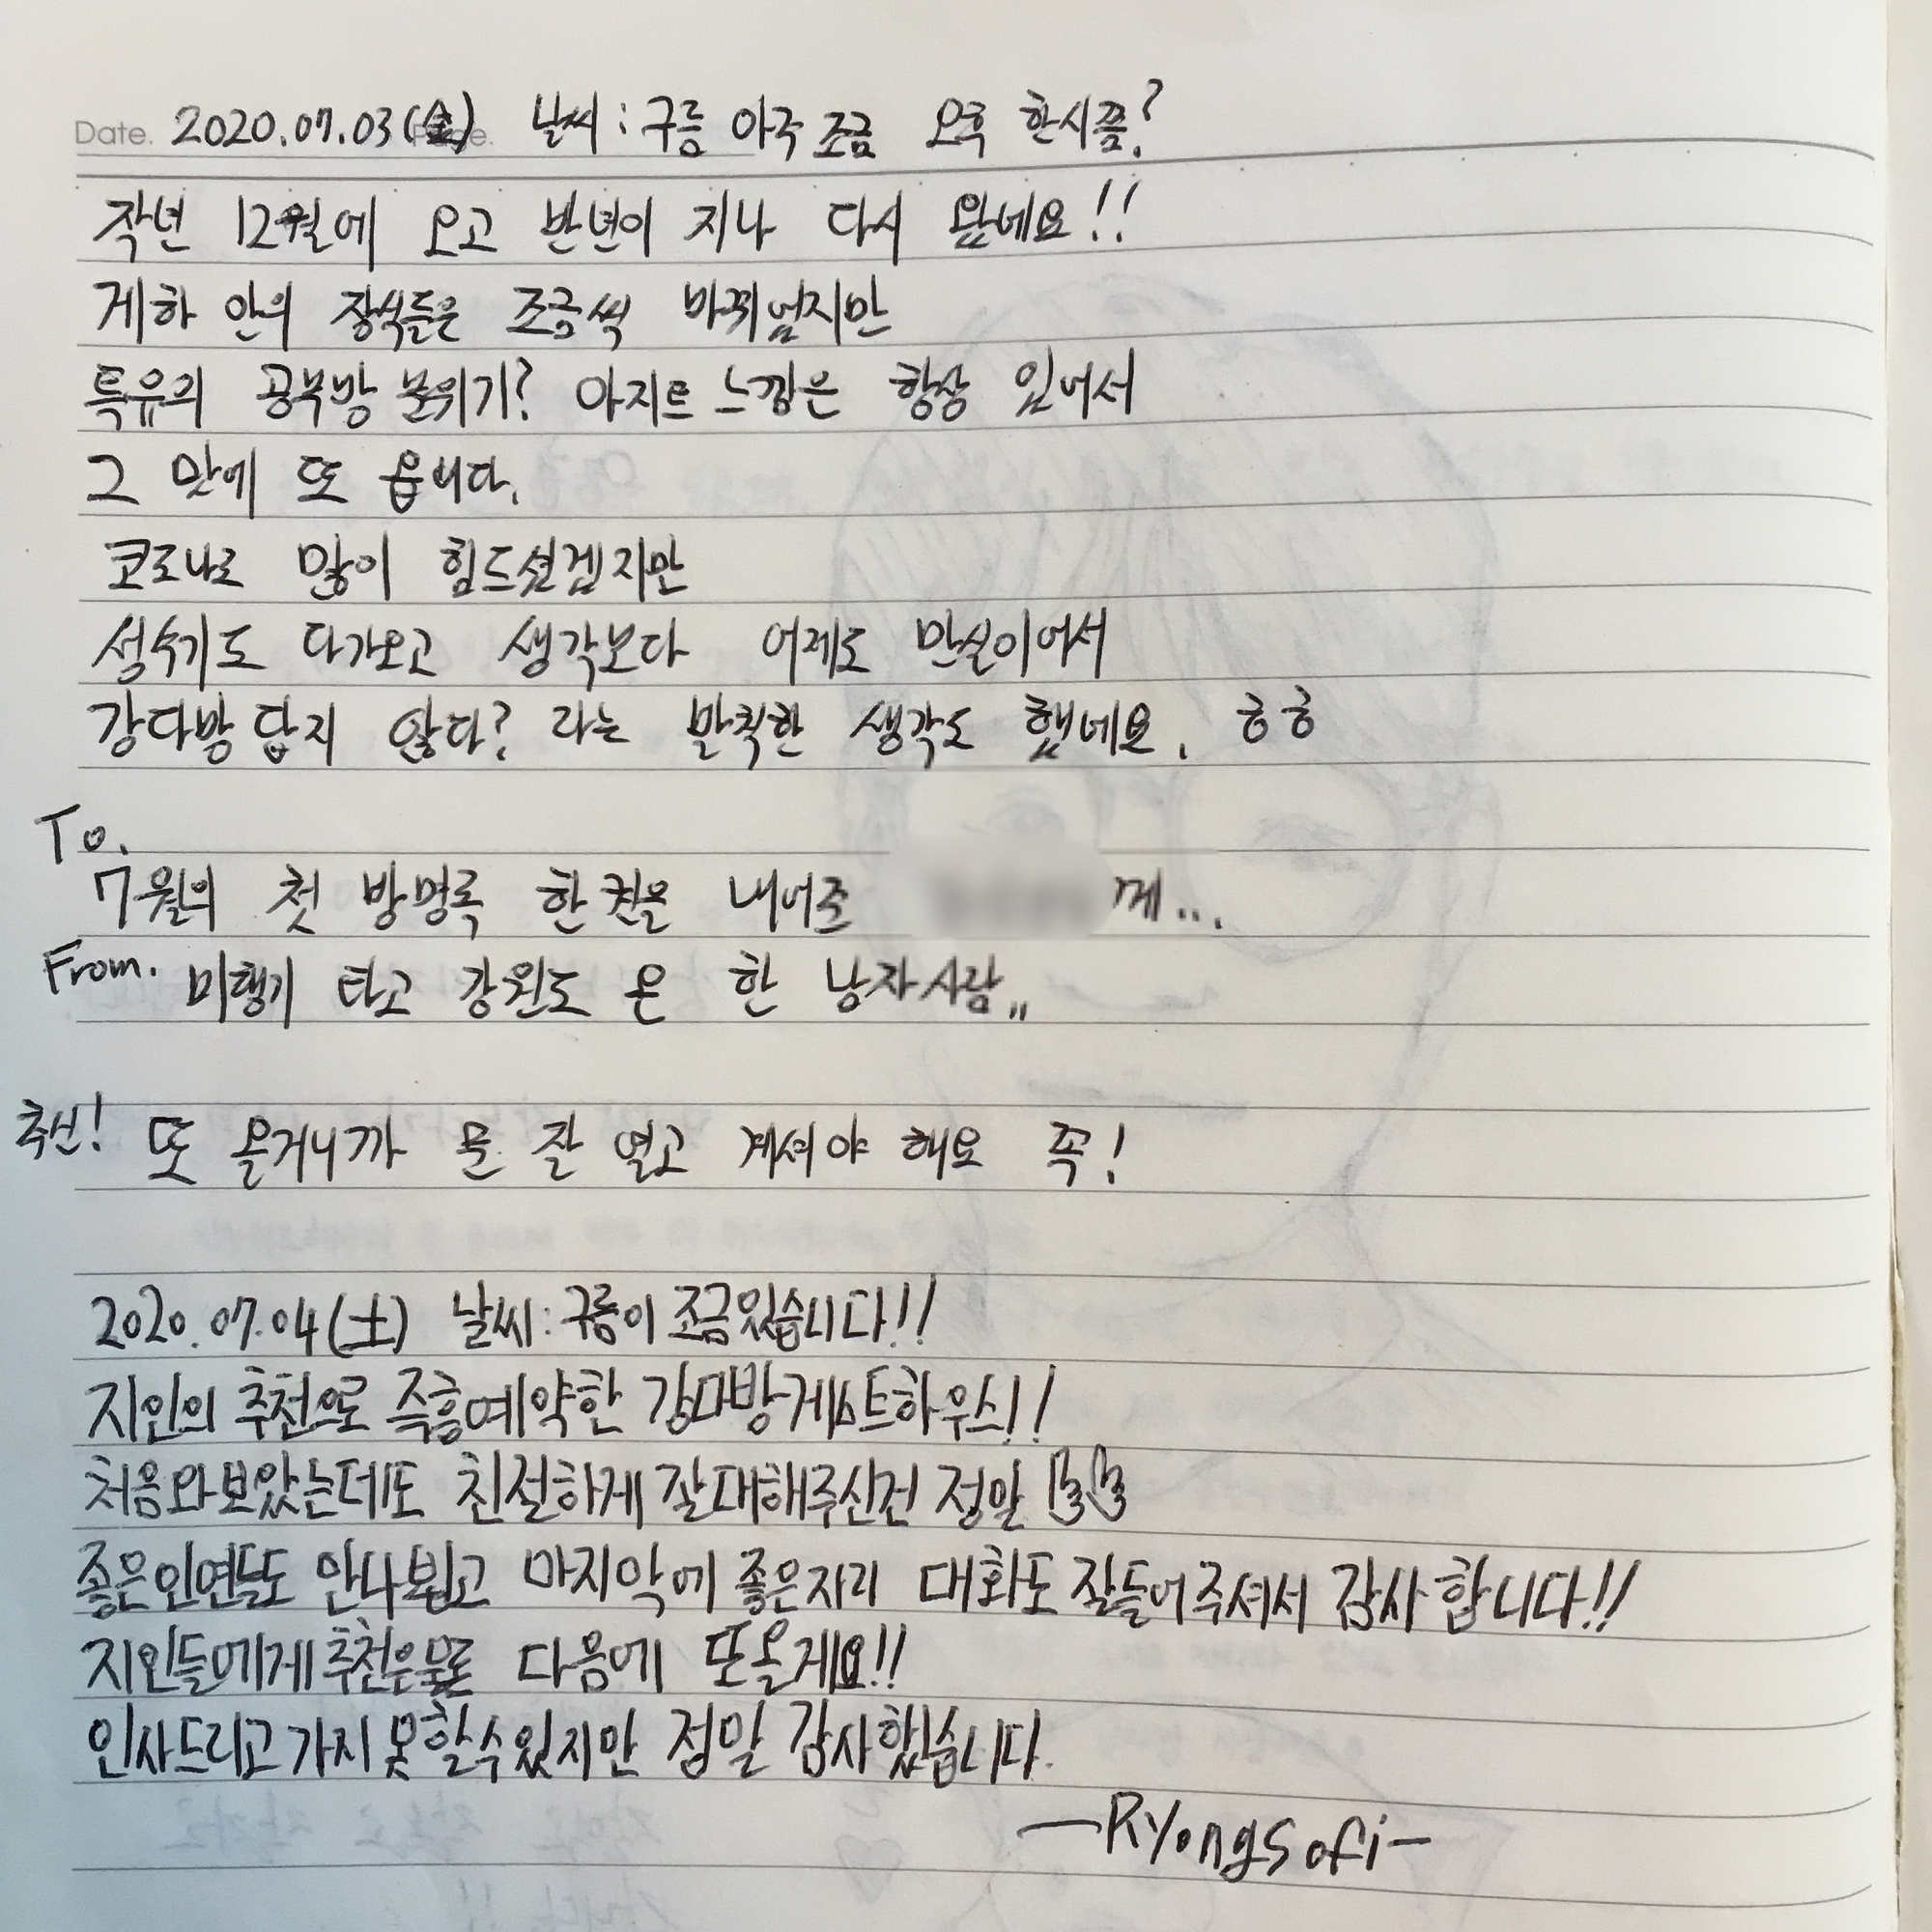 Date. 2020.07.03(金) 날씨 : 구름 아주 조금 오후 한시쯤?
작년 12월에 오고 반년이 지나 다시 왔네요!!
게하 안의 장식들은 조금씩 바뀌었지만
특유의 공부방 분위기? 아지트 느낌은 항상 있어서
그 맛에 또 옵니다.
코로나로 많이 힘드셨겠지만
성수기도 다가오고 생각보다 어제도 만실이어서
강다방 답지 않다? 라는 발칙한 생각도 했네요. ㅎㅎ
To.
7월의 첫 방명록 한 권을 내어준 께...
From. 비행기 타고 강원도 온 한 남자사람,,
추신! 또 올거니까 문 잘 열고 계셔야 해요 꼭!
2020.07.04(土) 날씨: 구름이 조금있습니다!!
지인의 추천으로 즉흥예약한 강다방게스트하우스!!
처음와보았는데도 친절하게 잘대해주신건 정말 👍👍
좋은인연들도 만나뵙고 마지막에 좋은자리 대화도 잘들어주셔서 감사합니다!!
지인들에게 추천은물론 다음에 또올게요!!
인사드리고가지못할수있지만 정말 감사했습니다.
—Ryongsofi—